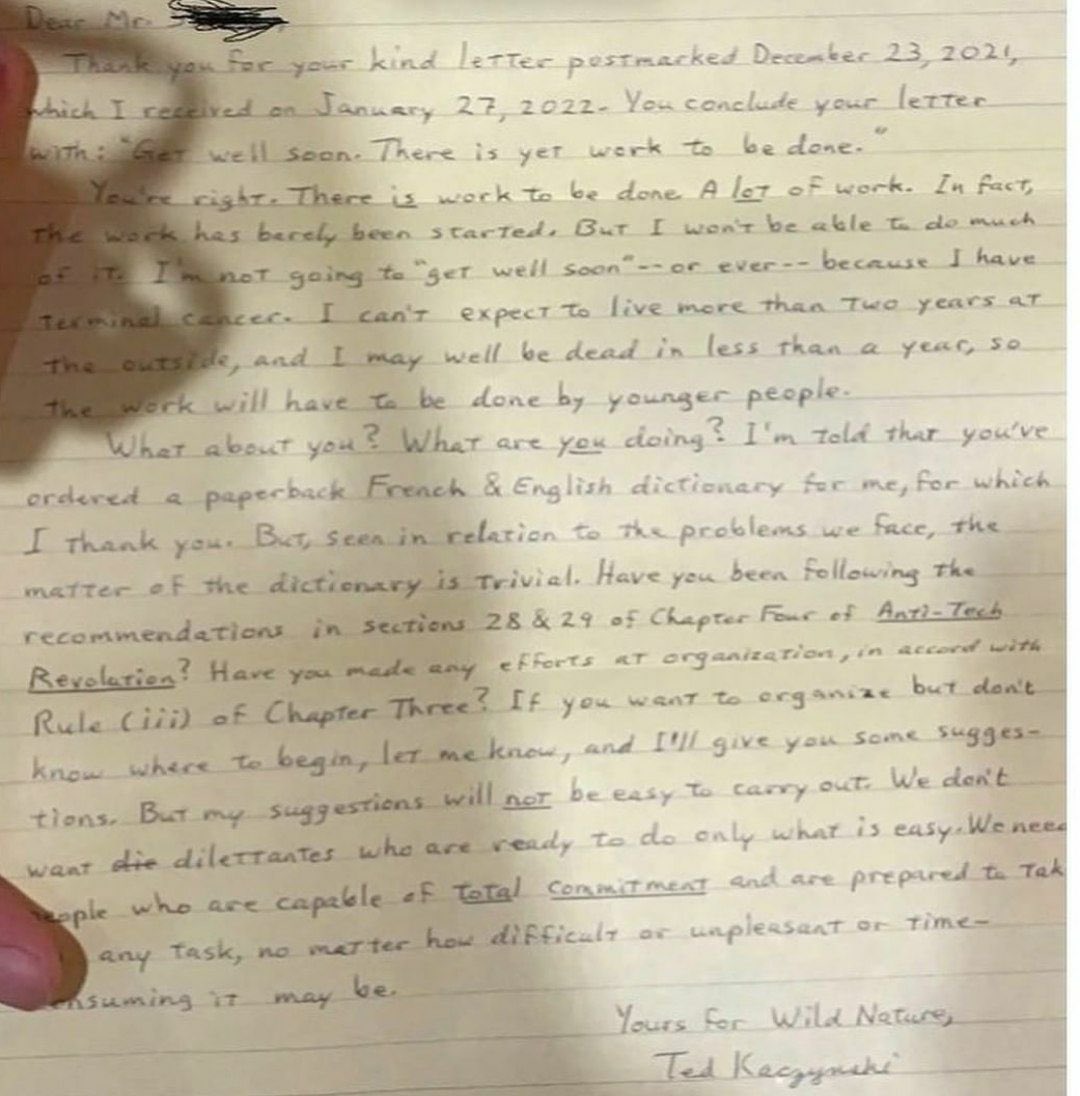 Dear Mr.
Thank you for your kind letter postmarked December 23, 2021,
which I received on January 27, 2022. You conclude your letter
with: "Get well soon. There is yet work to be done."
You're right. There is work to be done. A lot of work. In fact,
the work has barely been started. But I won't be able to do much
of it. I'm not going to "get well soon" -- or ever -- because I have
terminal cancer. I can't expect to live more than two years at
the outside, and I may well be dead in less than a year, so
the work will have to be done by younger people.
What about you? What are you doing? I'm told that you've
ordered a paperback French & English dictionary for me, for which
I thank you. But, seen in relation to the problems we face, the
matter of the dictionary is trivial. Have you been following the
recommendations in sections 28 & 29 of Chapter Four of Anti-Tech
Revolution? Have you made any efforts at organization, in accord with
Rule (iii) of Chapter Three? If you want to organize but don't
know where to begin, let me know, and I'll give you some sugges-
tions. But my suggestions will not be easy to carry out. We don't
want die dilettantes who are ready to do only what is easy. We need
people who are capable of total commitment and are prepared to tak
any task, no matter how difficult or unpleasant or time-
nsuming it may be.
Yours for Wild Nature,
Ted Kaczynski